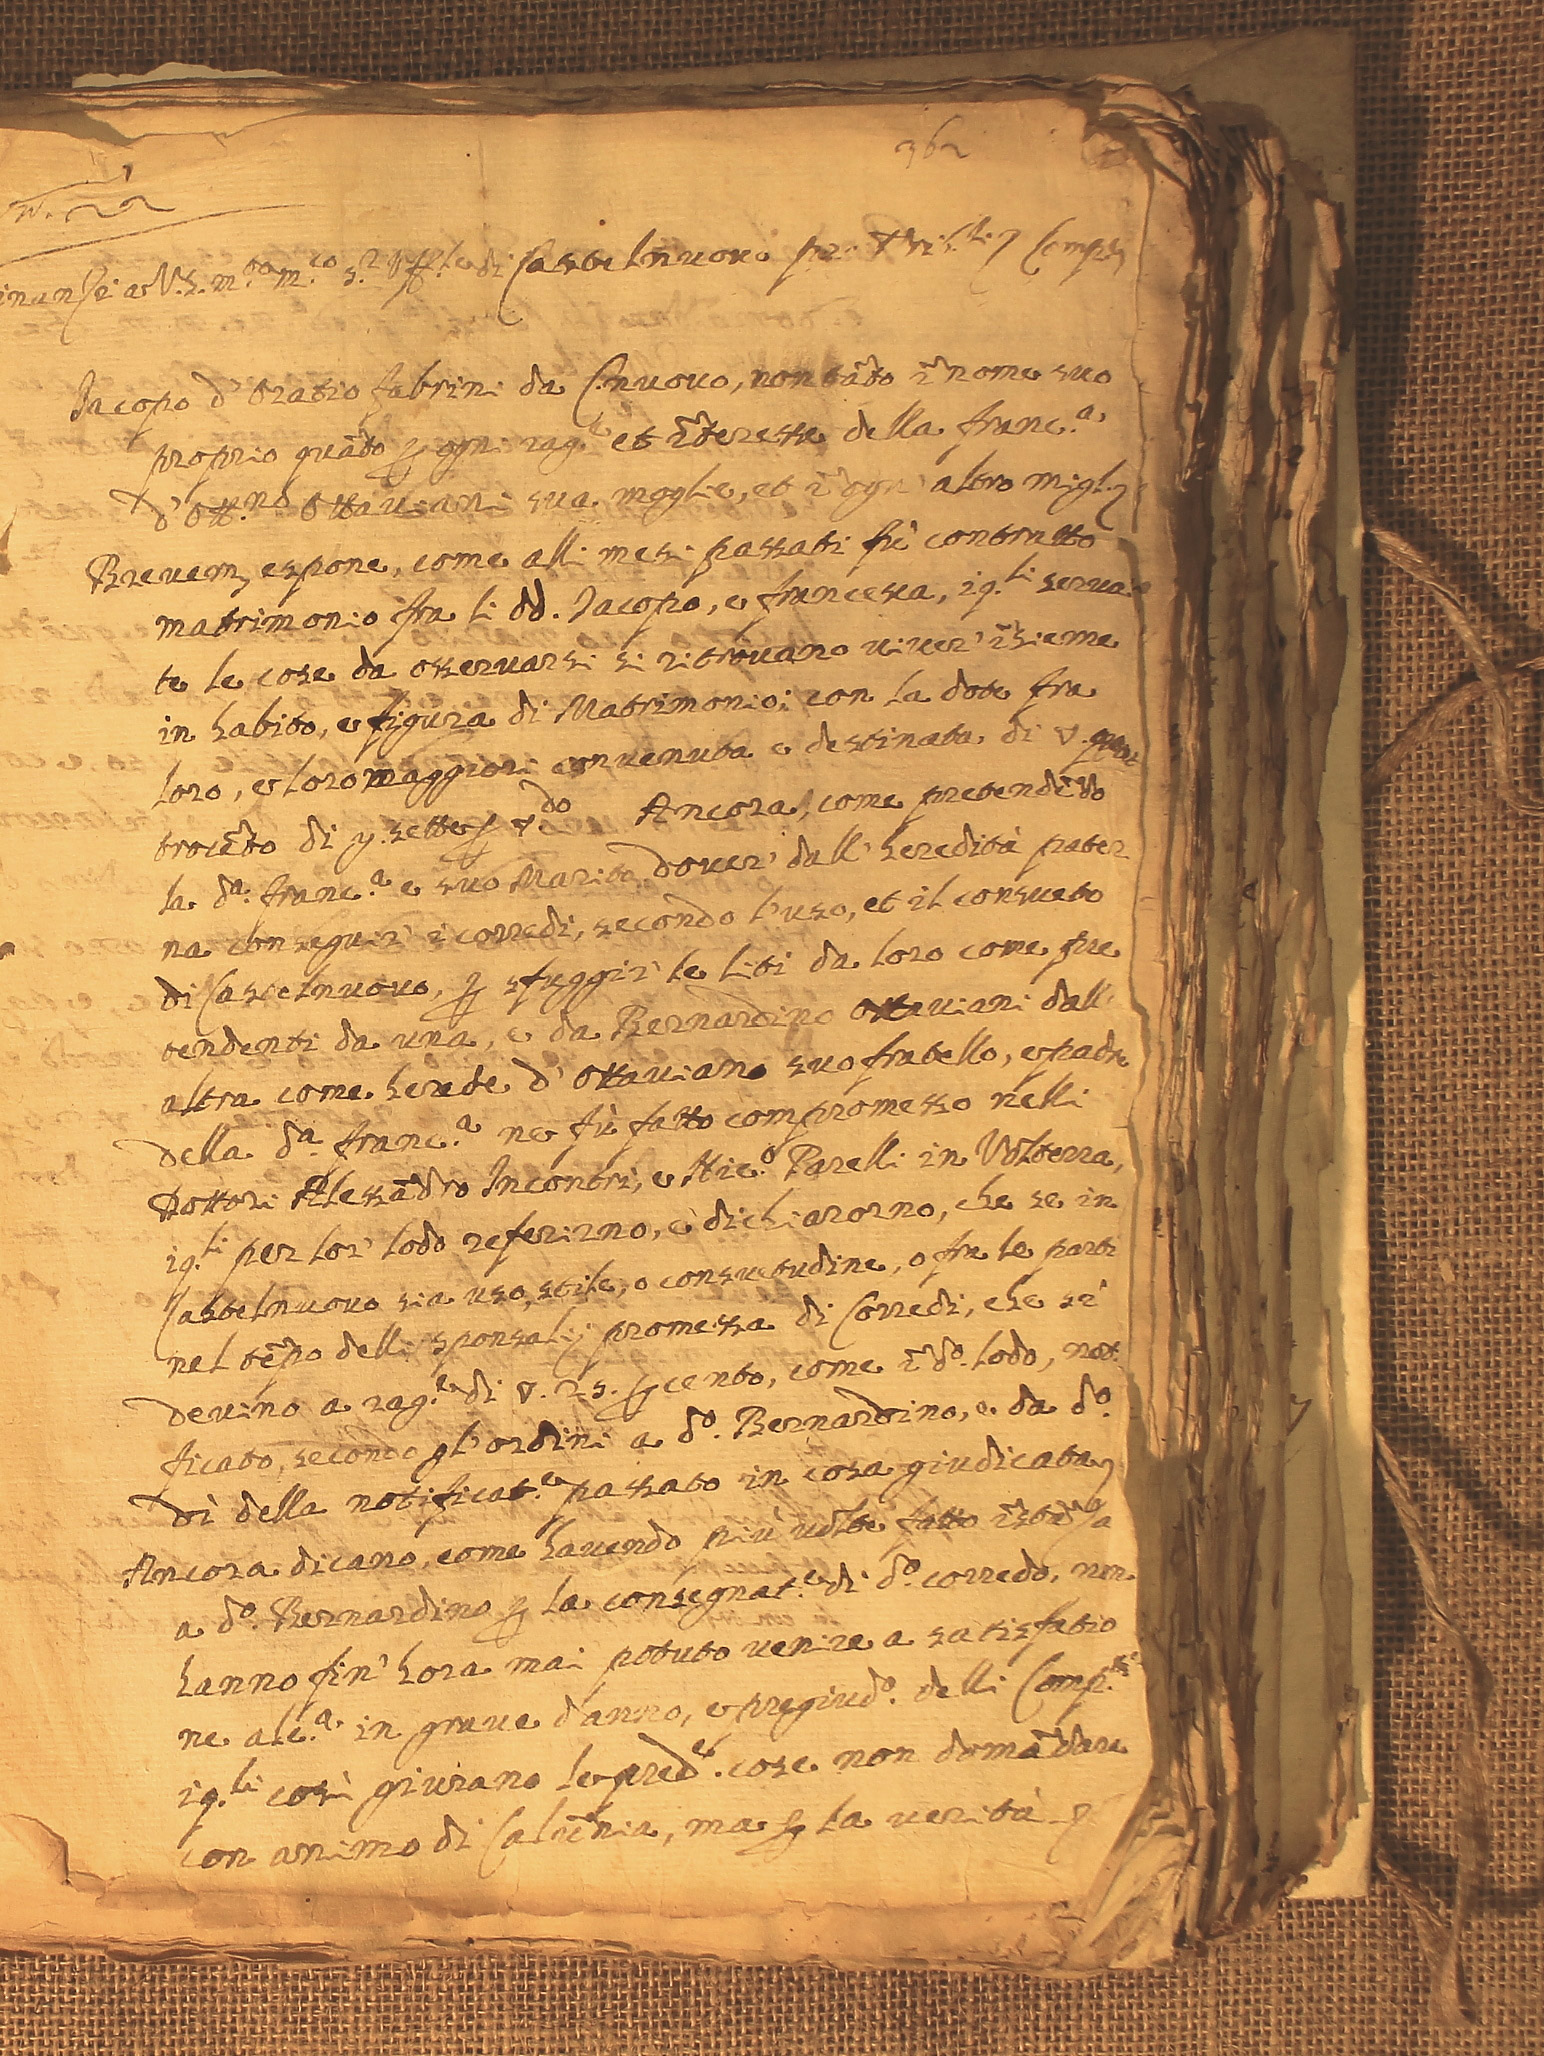 362
inanzi a V.S. m.to m.co s.r di Castelnuovo
Jacopo d'Oratio fabrini da C.nuovo, non tãto ĩ nome suo
proprio quãto ꝑ ogni rag.e et ĩteresse della franc.a
d'Ott.no Ottauiani sua moglie, et ĩ ogn' altro migl.
Breuem. espone, come alli mesi passati fù contratto
matrimonio fra li dd. Jacopo, e francesca, iq.li serua
te le cose da osseruarsi si ritrouano uiuer' ĩsieme
in habito, e figura di Matrimonio; con la dote fra
loro, e loro maggiori conuenuta e destinata di ▽.
trocẽto di y. sette ꝑ ▽.do Ancora, come pretendẽdo
la d.a franc.a e suo Marito douer' dall' heredità pater
na conseguir' i corredi, secondo l'uso, et il consueto
di Castelnuouo, ꝑ sfuggir' le liti da loro come pre
tendenti da una, e da Bernardino Ottauiani dall'
altra come herede d'Ottauiano suo fratello, e padre
della d.a franc.a ne fù fatto compromesso nelli
Dottori Alessãdro Incontri, e Hie.o Parelli in Volterra,
iq.li per lor' lodo referirno, e dichiarorno, che se in
Castelnuouo sia uso, stile, o consuetudine, o fra le parti
nel tẽpo delli sponsalij promessa di Corredi, che si
devino a rag.e di ▽. 25. ꝑ cento, come ĩ d.o lodo, not
ficato, secondo gl'ordini a d.o Bernardino, e da d.o
dì della notificat.e passato in cosa giudicata
Ancora dicano, come hauendo più uolte fatto ĩstãza
a d.o Bernardino ꝑ la consegnat.e di d.o corredo, non
hanno fin' hora mai potuto uenire a satisfatio
ne alc.a in graue danno, e pregiud.o delli Comp.ti
iq.li così giurano le pred.e cose non domãdare
con animo di Calũnia, ma ꝑ la uerità